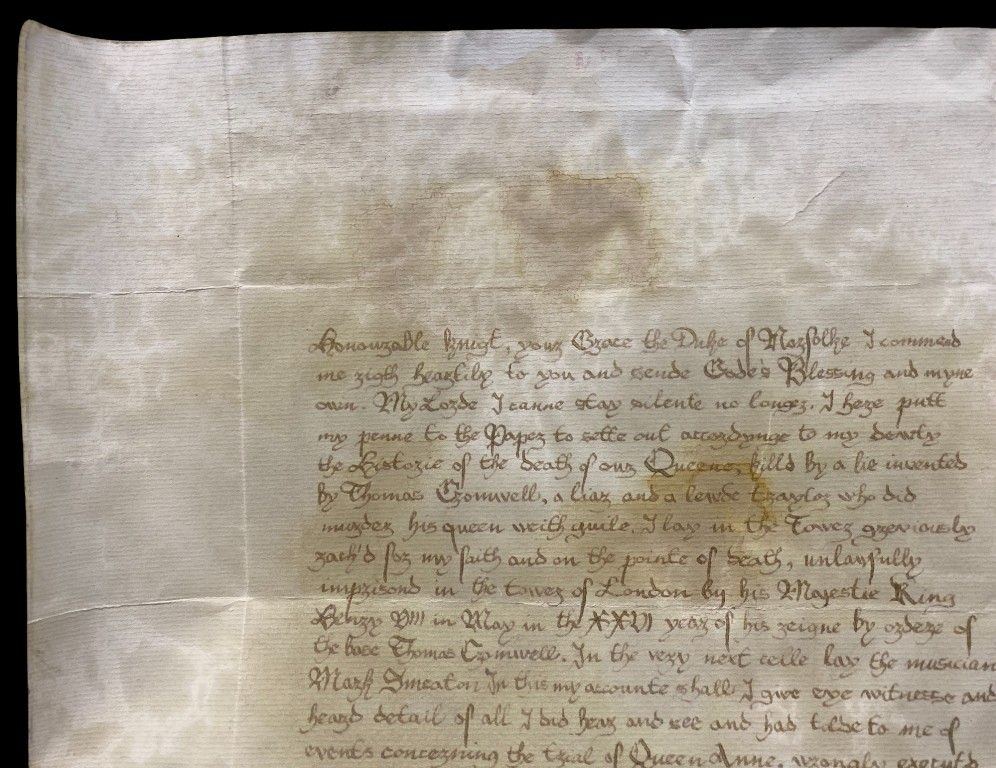 Honourable knigt, your Grace the Duke of Norfolke I commend
me rigth heartily to you and sende Gode's Blessing and myne
own. My Lorde I canne stay silente no longer. I here putt
my penne to the Paper to sette out accordynge to my dewty
the Historie of the death of our Queene, killd by a lie invented
by Thomas Cromwell, a liar and a lewde traytor who did
murder his queen with guile. I lay in the Tower greviously
rack'd for my faith and on the pointe of death, unlawfully
imprisond in the tower of London by his Majestie King
Henry VIII in May in the XXVI year of his reigne by ordere of
the base Thomas Cromwell. In the very next celle lay the musician
Mark Smeaton In this my accounte shall I give eye witnesse and
heard detail of all I did hear and see and had tolde to me of
events concerning the trial of Queen Anne, wrongly execut'd